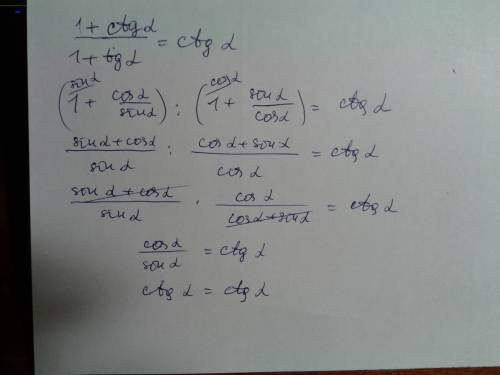 1 + ctg α / 1 + tg α = ctg α
(sin α/ 1 + cos α / sin α) : (cos α/ 1 + sin α / cos α) = ctg α
sin α + cos α / sin α : cos α + sin α / cos α = ctg α
sin α + cos α / sin α · cos α / cos α + sin α = ctg α
cos α / sin α = ctg α
ctg α = ctg α